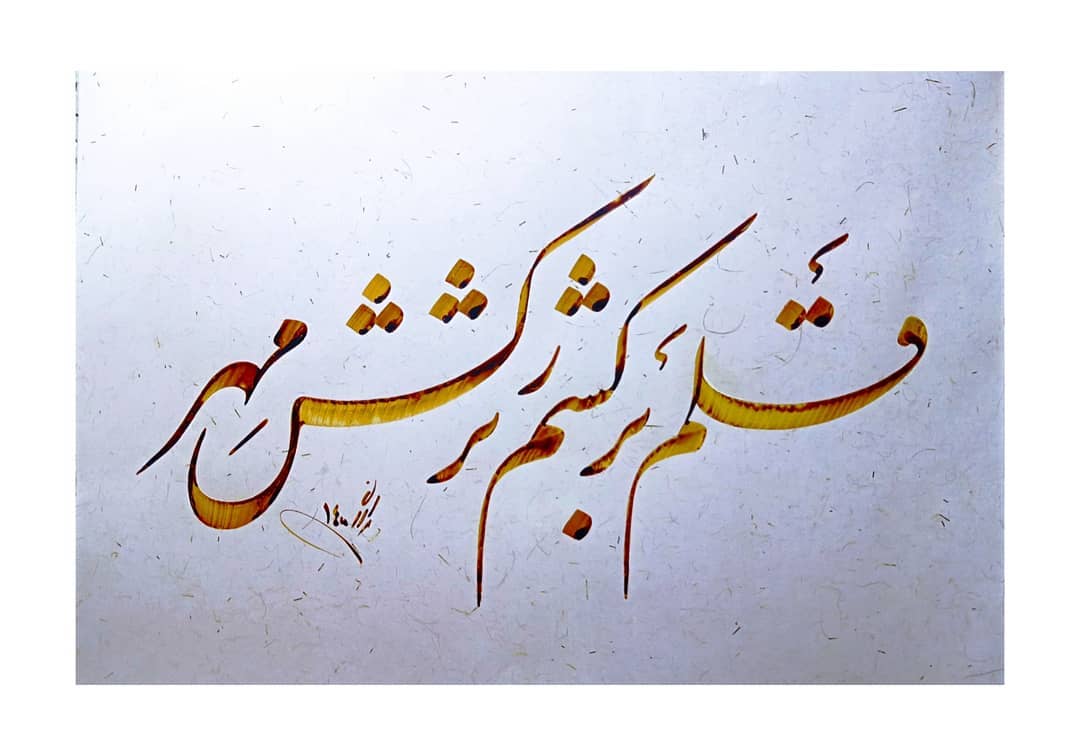 قلم بر کشم بر کشش مهر